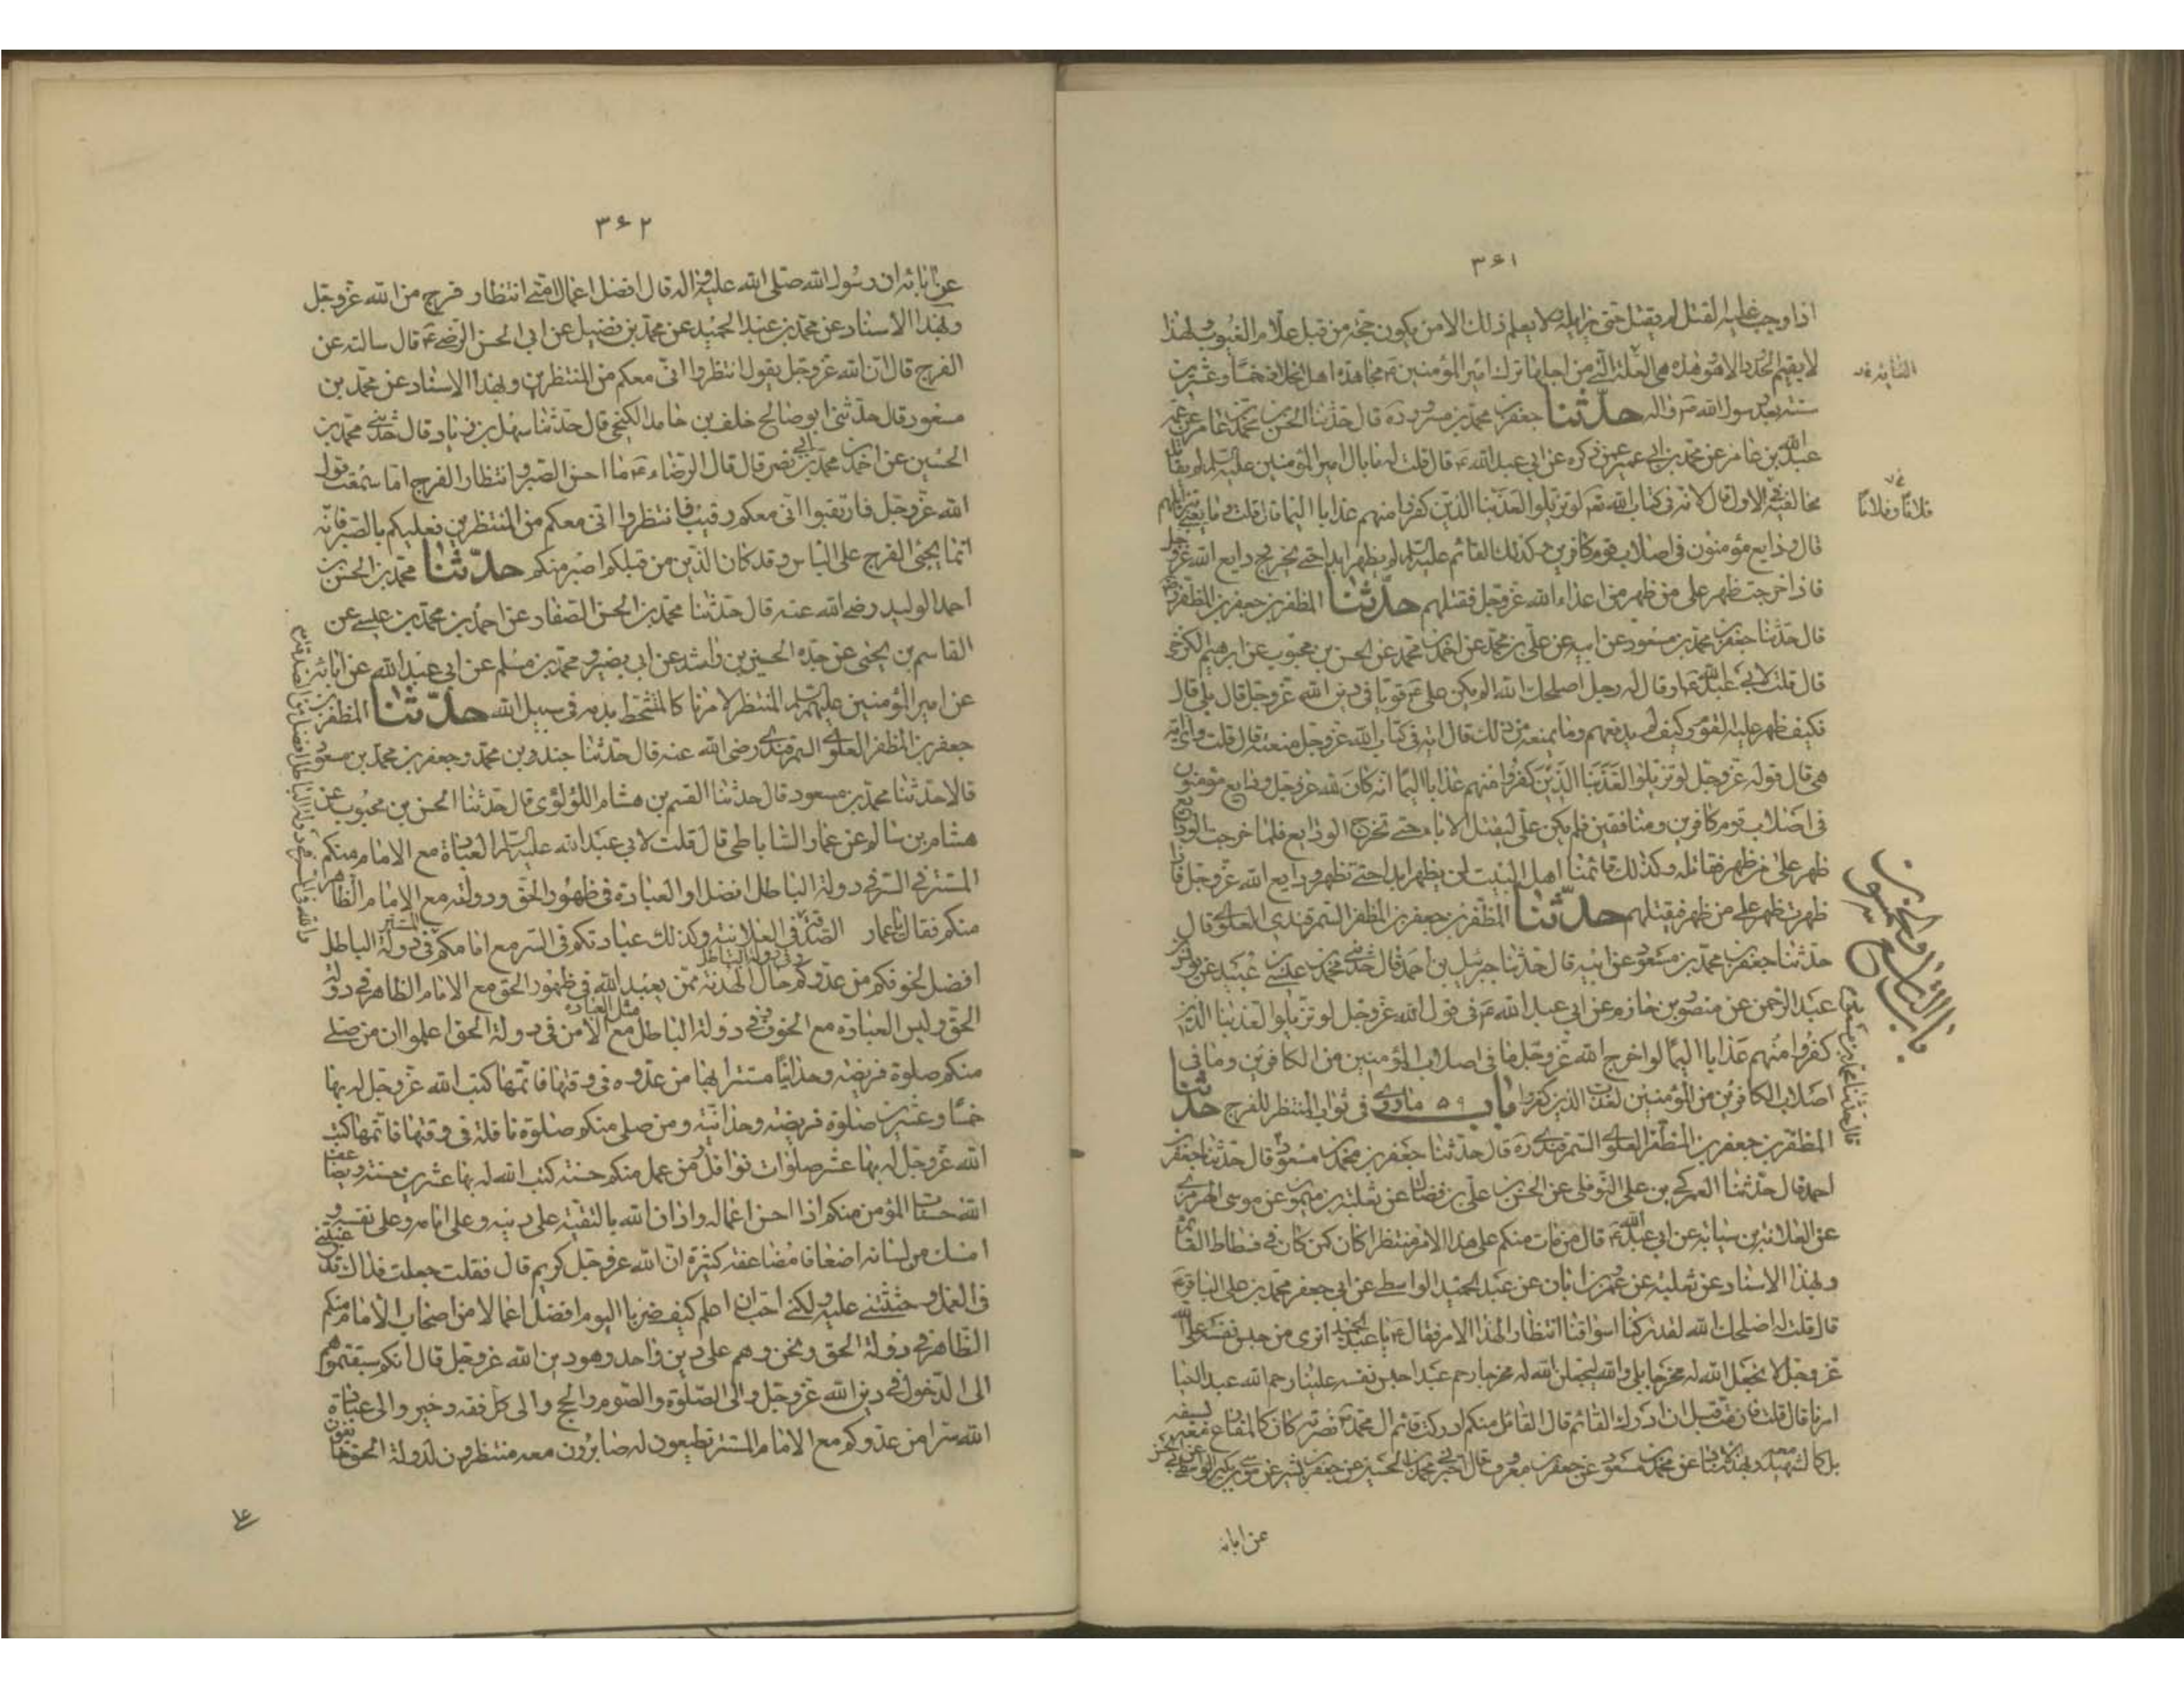 ٣۶١
اذا وجب عليه القتل لم يقتل حتى يزايله لا يعلم ذلك الا من يكون حجة من قبل علام الغيوب ولهذا
لا يقيم الحدود الا هو وهذه هى العلة التى من اجلها ترك امير المؤمنين ع مجاهدة اهل الخلاف خمسا وعشرين
سنة بعد رسول الله ص واله حدّثنا جعفر بن محمد بن مسرور ره قال حدثنا الحسين بن محمد بن عامر عن عمه
عبد الله بن عامر عن محمد بن ابى عمير عمن ذكره عن ابى عبد الله ع قال قلت له ما بال امير المؤمنين عليه السلم لم يقاتل
مخالفيه فى الاول قال لاية فى كتاب الله تع لو تزيلوا لعذبنا الذين كفروا منهم عذابا اليما قال قلت وما يعنى بتزايلهم
قال ودايع مؤمنون فى اصلاب قوم كافرين وكذلك القائم عليه السلم لم يظهر ابدا حتى يخرج ودايع الله عز وجل
فاذا خرجت ظهر على من ظهر من اعداء الله عز وجل فقتلهم حدّثنا المظفر بن جعفر بن المظفر
قال حدثنا جعفر بن محمد بن مسعود عن ابيه عن على بن محمد عن احمد بن محمد عن الحسن بن محبوب عن ابرهيم الكرخى
قال قلت لابى عبد الله ع او قال له رجل اصلحك الله الم يكن على ع قويا فى دين الله عز وجل قال بلى قال
فكيف ظهر عليه القوم وكيف لم يدفعهم وما يمنعه من ذلك قال اية فى كتاب الله عز وجل منعته قال قلت واى اية
هى قال قوله عز وجل لو تزيلوا لعذبنا الذين كفروا منهم عذابا اليما انه كان لله عز وجل ودايع مؤمنون
فى اصلاب قوم كافرين ومنافقين فلم يكن على ليقتل الاباء حتى تخرج الودايع فلما خرجت الودايع
ظهر على من ظهر فقاتله وكذلك قائمنا اهل البيت لن يظهر ابدا حتى تظهر ودايع الله عز وجل فاذا
ظهرت ظهر على من ظهر فيقتلهم حدّثنا المظفر بن جعفر بن المظفر السمرقندى العلوى قال
حدثنا جعفر بن محمد بن مسعود عن ابيه قال حدثنا جبرئيل بن احمد قال حدثنى محمد بن عيسى بن عبيد عن يونس بن
عبد الرحمن عن منصور بن حازم عن ابى عبد الله ع فى قول الله عز وجل لو تزيلوا لعذبنا الذين
كفروا منهم عذابا اليما لو اخرج الله عز وجل ما فى اصلاب المؤمنين من الكافرين وما فى
اصلاب الكافرين من المؤمنين لعذبت الذين كفروا باب ٥٩ ما روى فى ثواب المنتظر للفرج حدّثنا
المظفر بن جعفر بن المظفر العلوى السمرقندى ره قال حدثنا جعفر بن محمد بن مسعود قال حدثنا جعفر بن
احمد قال حدثنا العمركى بن على البوفكى عن الحسن بن على بن فضال عن ثعلبة بن ميمون عن موسى النميرى
عن العلا بن سيابة عن ابى عبد الله ع قال من مات منكم على هذا الامر منتظرا كان كمن كان فى فسطاط القائم
وبهذا الاسناد عن ثعلبة عن عمر بن ابان عن عبد الحميد الواسطى عن ابى جعفر محمد بن على الباقر ع
قال قلت له اصلحك الله لقد تركنا اسواقنا انتظارا لهذا الامر فقال ع يا عبد الحميد اترى من حبس نفسه على الله
عز وجل لا يجعل الله له مخرجا بلى والله ليجعلن الله له مخرجا رحم عبدا حبس نفسه علينا رحم الله عبدا احيا
امرنا قال قلت فان مت قبل ان ادرك القائم قال القائل منكم لو ادركت قائم ال محمد ص نصرته كان كالمقارع معه بسيفه
بل كالشهيد معه وبهذا الاسناد عن محمد بن مسعود عن جعفر بن معروف قال اخبرنى محمد بن الحسين عن جعفر بن بشير عن موسى بن بكر الواسطى عن ابى الحسن
عن ابائه
فلانا وفلانا
باب التاسع والخمسون
٣۶٢
عن ابائه ان رسول الله صلى الله عليه واله قال افضل اعمال امتى انتظار فرج من الله عز وجل
وبهذا الاسناد عن محمد بن عبد الحميد عن محمد بن فضيل عن ابى الحسن الرضى ع قال سالته عن
الفرج قال ان الله عز وجل يقول انتظروا انى معكم من المنتظرين وبهذا الاسناد عن محمد بن
مسعود قال حدثنى ابو صالح خلف بن حامد الكنجى قال حدثنا سهل بن زياد قال حدثنى محمد بن
الحسين عن احمد بن محمد بن ابى نصر قال قال الرضاء ع ما احسن الصبر وانتظار الفرج اما سمعت قول
الله عز وجل فارتقبوا انى معكم رقيب فانتظروا انى معكم من المنتظرين فعليكم بالصبر فانه
انما يجئ الفرج على الياس وقد كان الذين من قبلكم اصبر منكم حدّثنا محمد بن الحسن بن
احمد الوليد رضى الله عنه قال حدثنا محمد بن الحسن الصفار عن احمد بن محمد بن عيسى عن
القاسم بن يحيى عن جده الحسين بن راشد عن ابى بصير ومحمد بن مسلم عن ابى عبد الله عن ابائه
عن امير المؤمنين عليهم السلم المنتظر لامرنا كالمتشحط بدمه فى سبيل الله حدّثنا المظفر بن
جعفر بن المظفر العلوى السمرقندى رضى الله عنه قال حدثنا جندر بن محمد وجعفر بن محمد بن مسعود
قالا حدثنا محمد بن مسعود قال حدثنا القسم بن هشام اللؤلؤى قال حدثنا الحسن بن محبوب عن
هشام بن سالم عن عمار الساباطى قال قلت لابى عبد الله عليه السلم العبادة مع الامام منكم
المستتر فى السر فى دولة الباطل افضل او العبادة فى ظهور الحق ودولته مع الامام الظاهر
منكم فقال يا عمار الصدقة فى السر افضل من الصدقة فى العلانية وكذلك عبادتكم فى السر مع امامكم المستتر فى دولة الباطل
افضل لخوفكم من عدوكم فى دولة الباطل وحال الهدنة ممن يعبد الله فى ظهور الحق مع الامام الظاهر فى دولة
الحق وليس العبادة مع الخوف فى دولة الباطل مثل العبادة مع الامن فى دولة الحق اعلموا ان من صلى
منكم صلوة فريضة وحدانيا مستترا بها من عدوه فى وقتها فاتمها كتب الله عز وجل له بها
خمسا وعشرين صلوة فريضة وحدانية ومن صلى منكم صلوة نافلة فى وقتها فاتمها كتب
الله عز وجل له بها عشر صلوات نوافل ومن عمل منكم حسنة كتب الله له بها عشرين حسنة ويضاعف
الله حسنات المؤمن منكم اذا احسن اعماله ودان الله بالتقية على دينه وعلى امامه وعلى نفسه و
امسك من لسانه اضعافا مضاعفة كثيرة ان الله عز وجل كريم قال فقلت جعلت فداك قد رغبتنى
فى العمل وحثثتنى عليه ولكنى احب ان اعلم كيف صرنا اليوم افضل اعمالا من اصحاب الامام منكم
الظاهر فى دولة الحق ونحن وهم على دين واحد وهو دين الله عز وجل قال انكم سبقتموهم
الى الدخول فى دين الله عز وجل والى الصلوة والصوم والحج والى كل فقه وخير والى عبادة
الله سرا من عدوكم مع الامام المستتر تطيعون له صابرون معه منتظرون لدولة الحق خائفون